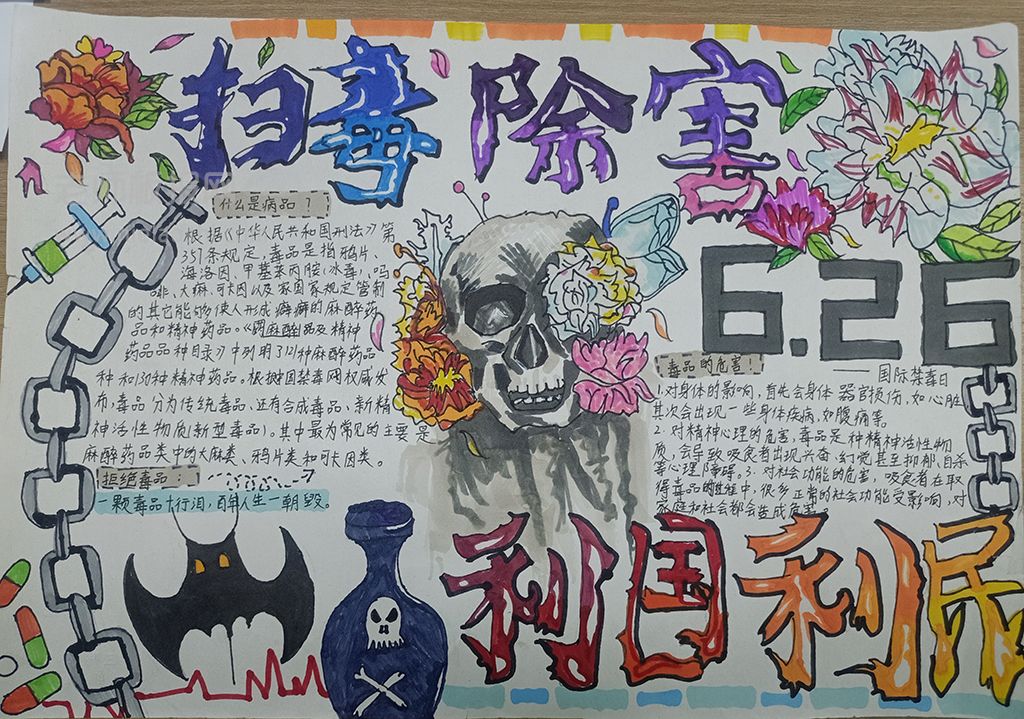 扫毒除害
什么是病品?
根据《中华人民共和国刑法》第
357条规定,毒品是指鸦片、
海洛因、甲基苯丙胺(冰毒)、吗
啡、大麻、可卡因以及家国家规定管制
的其它能够使人形成癖癖的麻醉药
品和精神药品。《麻醉品及精神
药品品种目录》中列明312种麻醉药品
种和130种精神药品。根据中国禁毒网权威发
布,毒品分为传统毒品、还有合成毒品、新精
神活性物质(新型毒品)。其中最为常见的主要是
麻醉药品类中的大麻类、鸦片类和可卡因类。
拒绝毒品:
一颗毒品十行泪,百年人生一朝毁。
6.26
——国际禁毒日
毒品的危害!
1.对身体的影响,首先会身体器官损伤,如心脏
其次会出现一些身体疾病,如腹痛等。
2.对精神心理的危害,毒品是种精神活性物
质,会导致吸食者出现兴奋、幻觉甚至抑郁、自杀
等心理障碍。3.对社会功能的危害,吸食者在取
得毒品的过程中,很多正常的社会功能受影响,对
家庭和社会都会造成危害。
利国利民